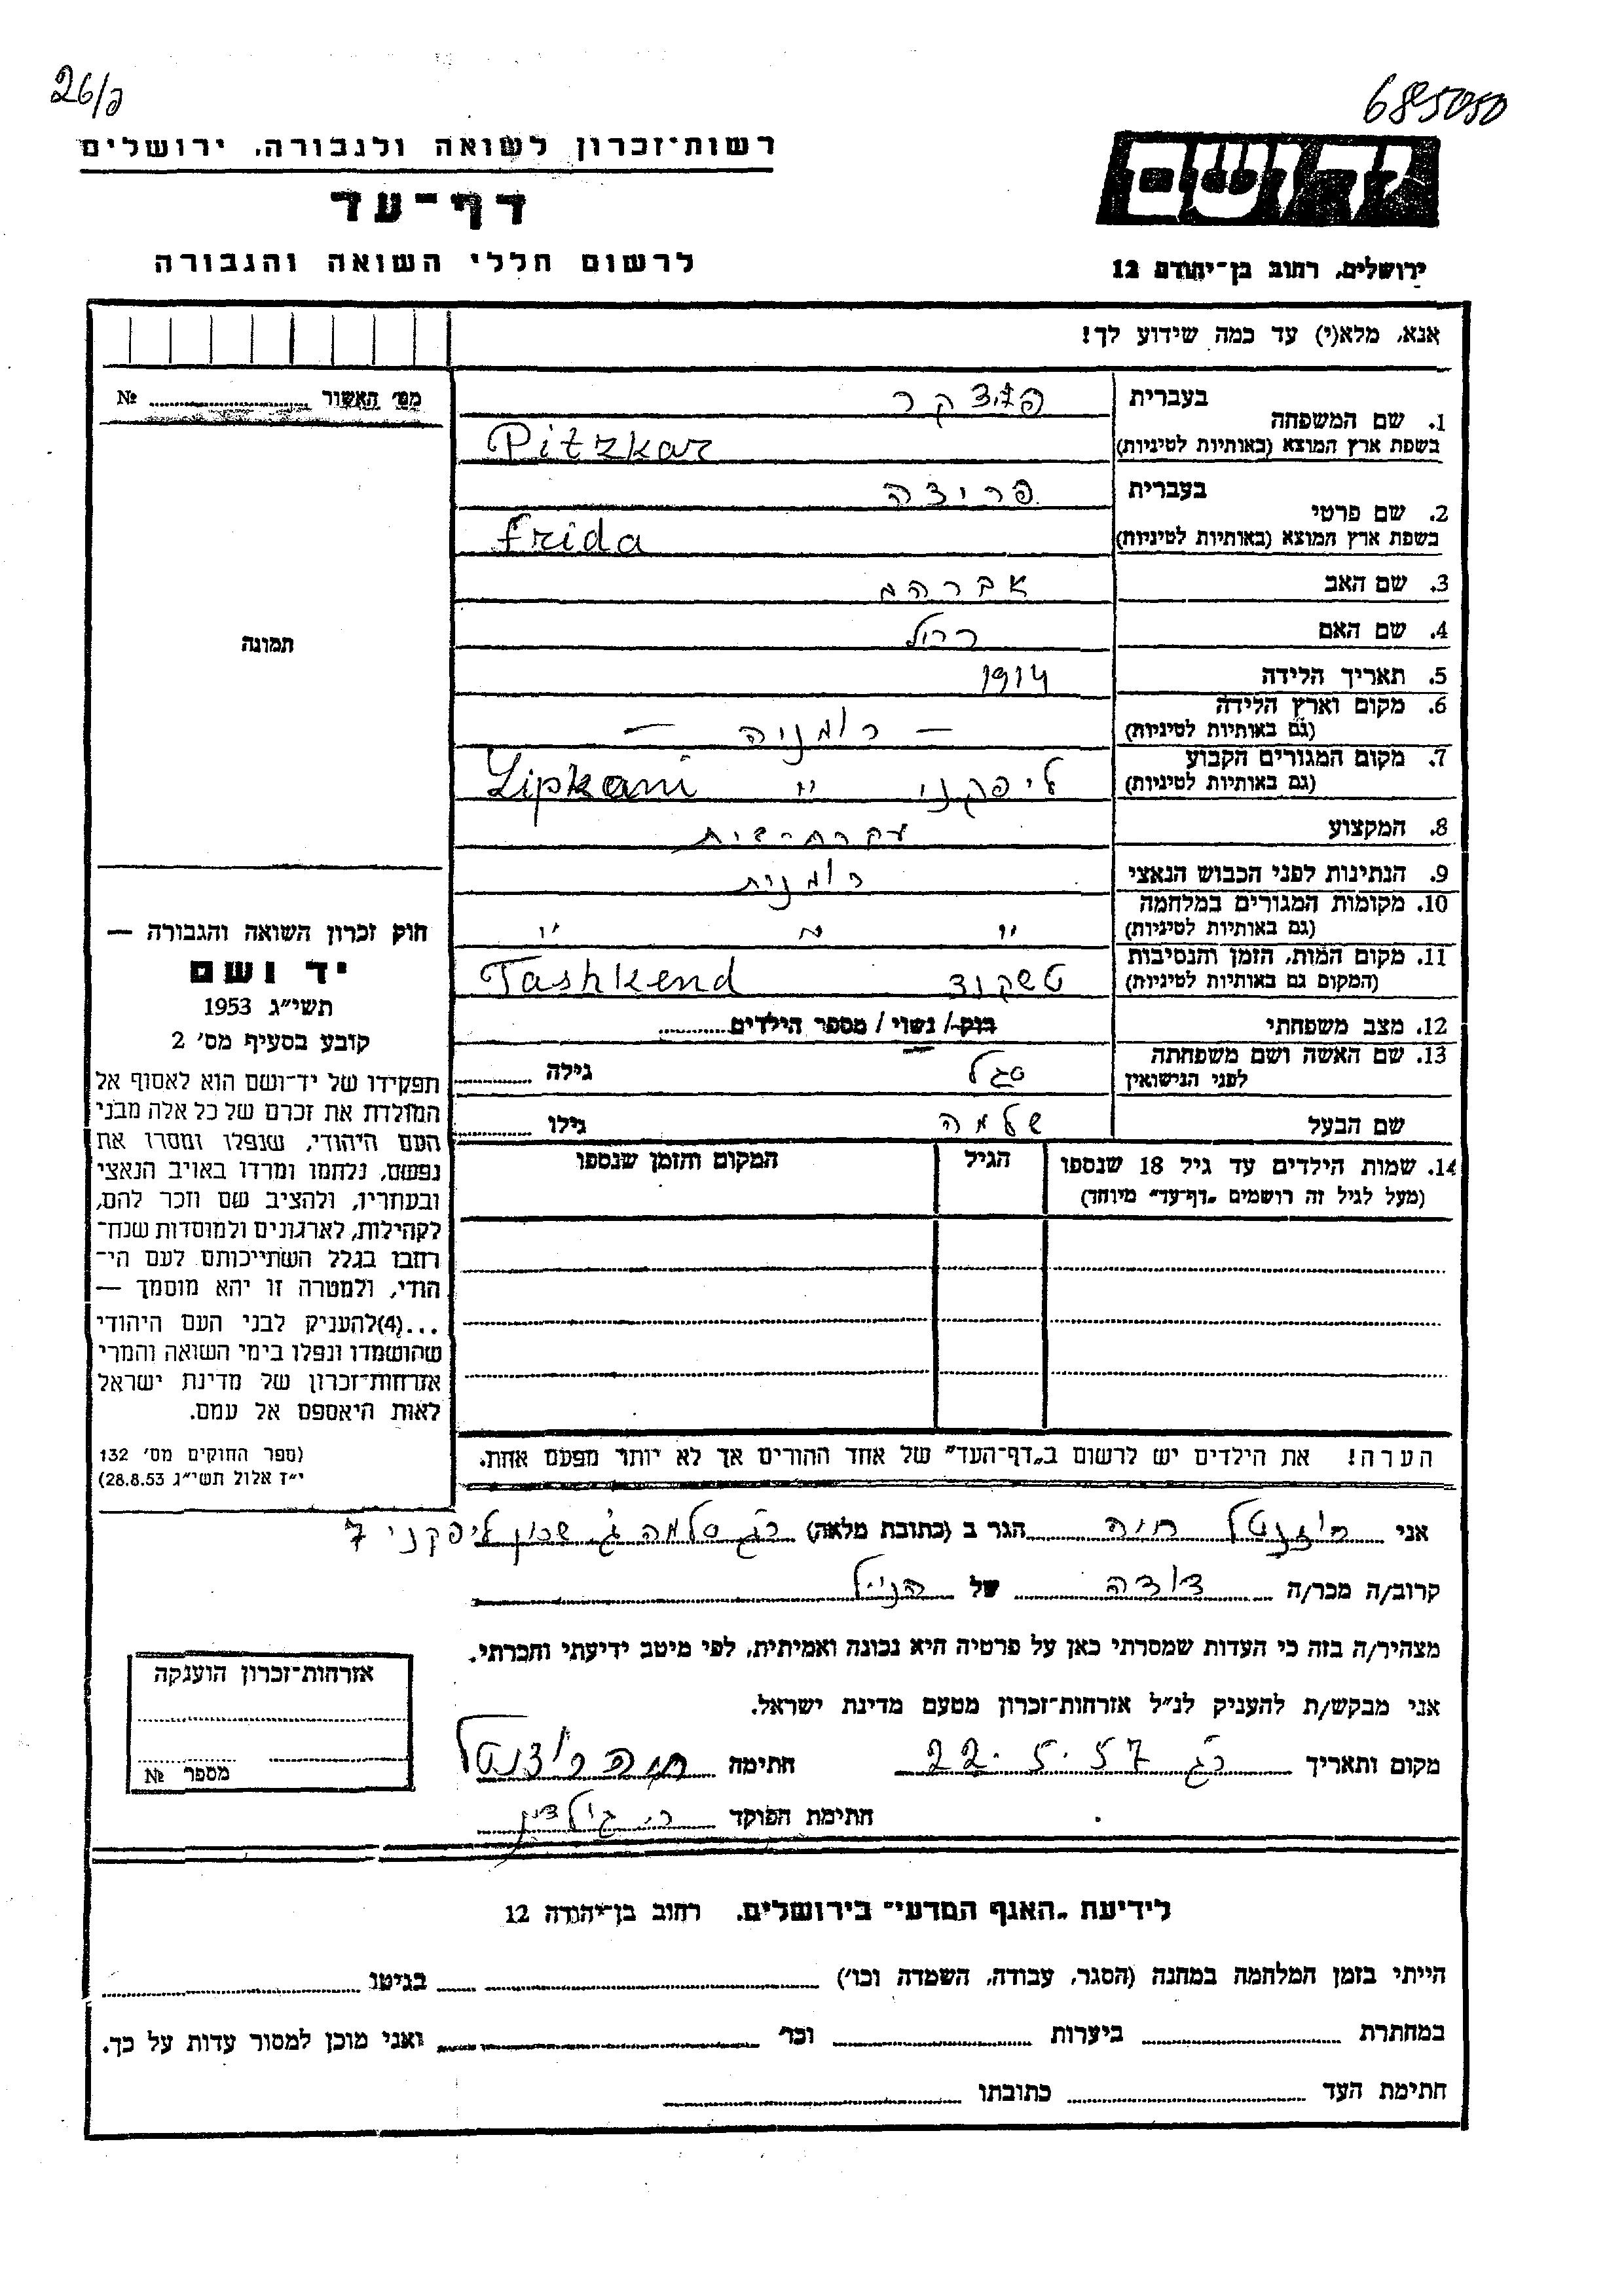 26/ס
685050
רשות־זכרון לשואה ולגבורה, ירושלים
דף־עד
לרשום חללי השואה והגבורה
יד ושם
ירושלים, רחוב בן־יהודה 12
אנא, מלא(י) עד כמה שידוע לך!
מס׳ האשור ........ №
תמונה
בעברית
1. שם המשפחה
בשפת ארץ המוצא (באותיות לטיניות)
פיצקר
Pitzkar
בעברית
2. שם פרטי
בשפת ארץ המוצא (באותיות לטיניות)
פרידה
Frida
3. שם האב אברהם
4. שם האם רחל
5. תאריך הלידה 1914
6. מקום וארץ הלידה
(גם באותיות לטיניות)
— רומניה —
7. מקום המגורים הקבוע
(גם באותיות לטיניות)
ליפקני " Lipkani
8. המקצוע עקרת-בית
9. הנתינות לפני הכבוש הנאצי רומנית
10. מקומות המגורים במלחמה
(גם באותיות לטיניות)
11. מקום המות, הזמן והנסיבות
(המקום גם באותיות לטיניות)
טשקנד Tashkend
12. מצב משפחתי רווק / נשוי / מספר הילדים........
13. שם האשה ושם משפחתה
לפני הנישואין
סגל גילה ........
שם הבעל שלמה גילו ........
14. שמות הילדים עד גיל 18 שנספו
(מעל לגיל זה רושמים „דף־עד" מיוחד)
הגיל
המקום והזמן שנספו
הערה! את הילדים יש לרשום ב„דף־העד" של אחד ההורים אך לא יותר מפעם אחת.
חוק זכרון השואה והגבורה —
יד ושם
תשי״ג 1953
קובע בסעיף מס׳ 2
תפקידו של יד־ושם הוא לאסוף אל
המולדת את זכרם של כל אלה מבני
העם היהודי, שנפלו ומסרו את
נפשם, נלחמו ומרדו באויב הנאצי
ובעוזריו, ולהציב שם וזכר להם,
לקהילות, לארגונים ולמוסדות שנח־
רחבו בגלל השתייכותם לעם הי־
הודי, ולמטרה זו יהא מוסמך —
...(4)להעניק לבני העם היהודי
שהושמדו ונפלו בימי השואה והמרי
אזרחות־זכרון של מדינת ישראל
לאות היאספם אל עמם.
(ספר החוקים מס׳ 132
י״ז אלול תשי״ג 28.8.53)
אני רוזנטל חיה הגר ב (כתובת מלאה) רג סלמה ג׳ שכון ליפקני 7
קרוב/ה מכר/ה דודה של הנ״ל
מצהיר/ה בזה כי העדות שמסרתי כאן על פרטיה היא נכונה ואמיתית, לפי מיטב ידיעתי והכרתי.
אני מבקש/ת להעניק לנ״ל אזרחות־זכרון מטעם מדינת ישראל.
מקום ותאריך רג 22.5.57 חתימה חיה רוזנטל
חתימת הפוקד
אזרחות־זכרון הוענקה
מספר №
לידיעת „האגף המדעי" בירושלים, רחוב בן־יהודה 12
הייתי בזמן המלחמה במחנה (הסגר, עבודה, השמדה וכו׳) ........ בגיטו ........
במחתרת ........ ביערות ........ וכו׳ ........ ואני מוכן למסור עדות על כך.
חתימת העד ........ כתובתו ........